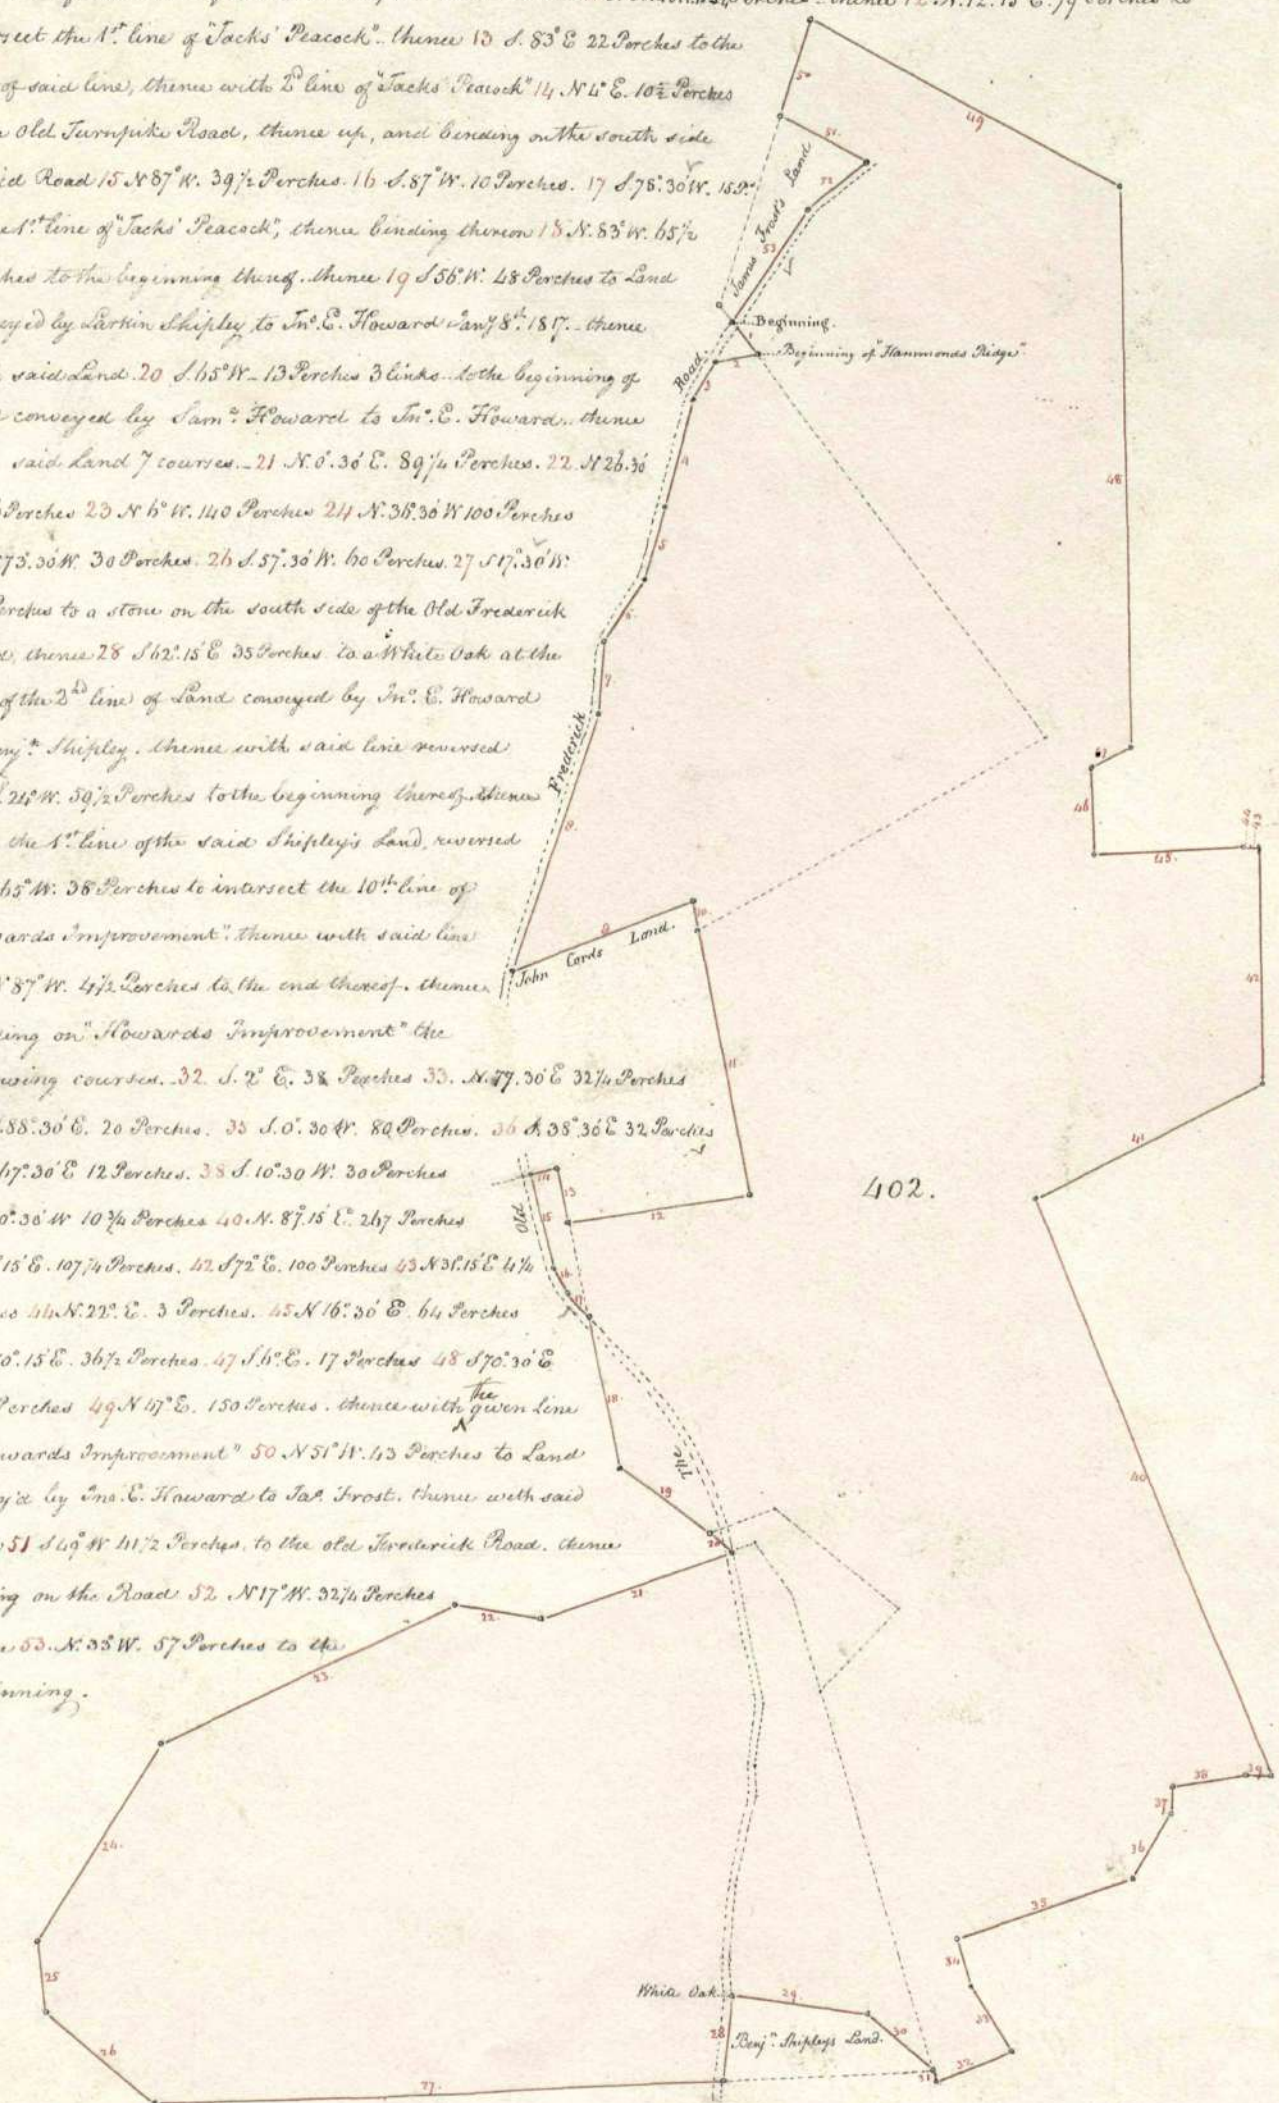 thence 12 N. 12.15 E. 79 Perches to
sect the 1st line of "Jacks' Peacock".. thence 13 S. 83° E 22 Perches to the
of said line, thence with 2d line of "Jacks Peacock" 14 N 4° E. 10½ Perches
Old Turnpike Road, thence up, and binding on the south side
id Road 15 N 87° W. 39½ Perches. 16 S. 87° W. 10 Perches. 17 S. 78°.30' W. 15 P.
e 1st line of "Jacks' Peacock", thence binding thereon 18 N. 83° W. 65½
ches to the beginning thereof. thence 19 S 56° W. 48 Perches to Land
ey'd by Larkin Shipley to Jno. E. Howard Jany 8th 1817. - thence
said Land. 20 S. 65° W - 13 Perches 3 links.. to the beginning of
conveyed by Saml. Howard to Jno. E. Howard.. thence
said Land 7 courses. - 21 N. 0°.30' E. 89¼ Perches. 22. N 26.30
Perches 23 N 6° W. 140 Perches 24 N. 36.30 W 100 Perches
73°.30 W. 30 Perches. 26 S. 57°.30' W. 60 Perches. 27 S 17°.30' W.
erches to a stone on the south side of the Old Frederick
d, thence 28 S 62°.15' E 35 Perches to a White Oak at the
of the 2nd line of Land conveyed by Jno. E. Howard
enjn. Shipley. thence with said line reversed
21° W. 59½ Perches to the beginning thereof thence
the 1st line of the said Shipley's Land, reversed
65° W. 38 Perches to intersect the 10th line of
wards Improvement". thence with said line
N 87° W. 4½ Perches to the end thereof. thence
ing on "Howards Improvement" the
owing courses. - 32. S. 2° E. 38 Perches 33. N. 77.30 E 32¼ Perches
88°.30' E. 20 Perches. 35 S. 0°.30 W. 80 Perches. 36 S. 38°.30' E 32 Perches
67°.30' E 12 Perches. 38 S. 10°.30 W. 30 Perches
0°.30' W 10¾ Perches 40. N. 87°.15' E. 267 Perches
15' E. 107¼ Perches. 42 S 72° E. 100 Perches 43 N 31°.15' E 4¼
es 44 N. 22° E. 3 Perches. 45 N 16°.30' E. 64 Perches
0°.15' E. 36½ Perches. 47 S. 6° E. 17 Perches 48 S 70°.30' E
Perches 49 N 47° E. 150 Perches. thence with the given line
wards Improvement" 50 N 51° W. 43 Perches to Land
ey'd by Jno. E. Howard to Jas. Frost. thence with said
51 S 49° W 41½ Perches, to the old Frederick Road. thence
ng on the Road 52 N 17° W. 32¼ Perches
53. N. 35° W. 57 Perches to the
inning.
50
49
51
52
James Frost's Land
53
Beginning.
Beginning of "Hammonds Ridge"
2
3
Road
4
48
5
6
7
Frederick
46
44
43
45.
8.
10
9
John Cords Land.
42
11
41
402.
14
13
12
Old
15
16
17
18
The
40
19
20
21
22
23
38
39
37
36
24
35
34
25
White Oak
29
33
28
Benjn. Shipleys Land.
30
32
31
26
27.